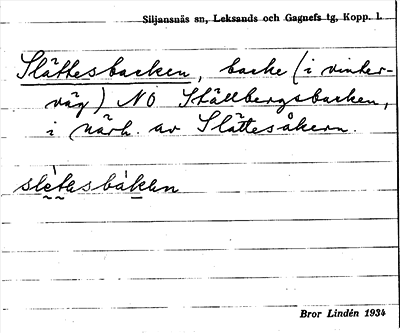 Siljansnäs sn, Leksands och Gagnefs tg, Kopp. l.
Slättesbacken, backe (i vinter-
väg) NO Ställbergsbacken,
i närh. av Slättesåkern.
slètesbàken
Bror Lindén 1934